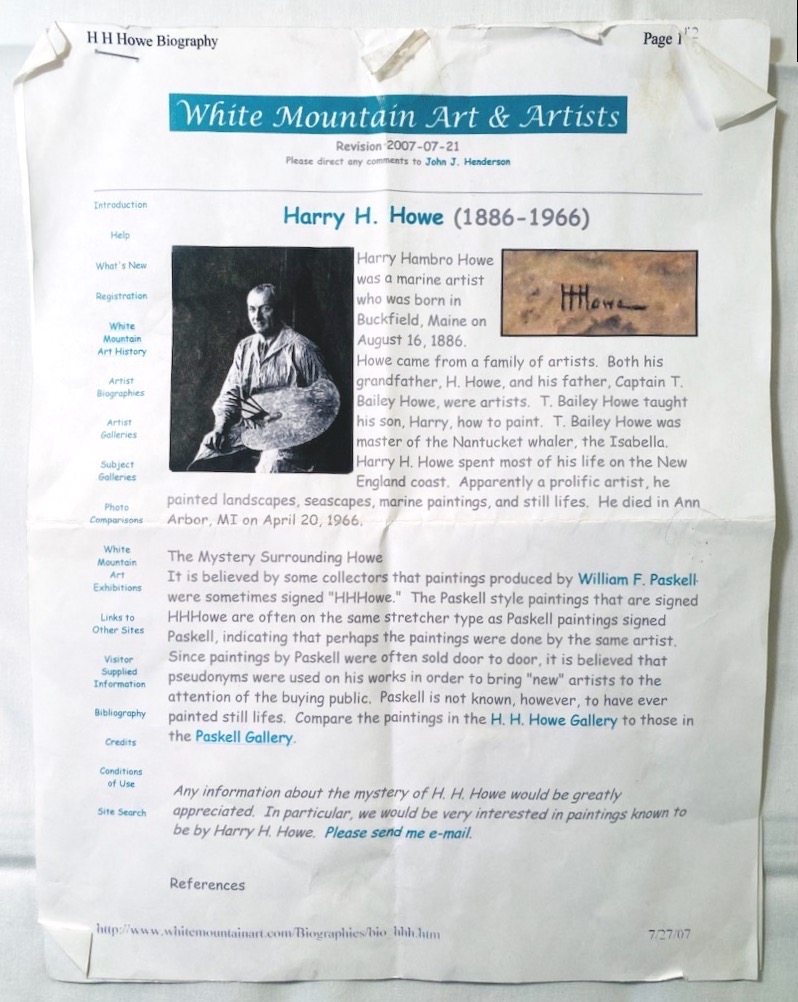 H H Howe Biography
Page 1
White Mountain Art & Artists
Revision 2007-07-21
Please direct any comments to John J. Henderson
Introduction
Help
What's New
Registration
White
Mountain
Art History
Artist
Biographies
Artist
Galleries
Subject
Galleries
Photo
Comparisons
White
Mountain
Art
Exhibitions
Links to
Other Sites
Visitor
Supplied
Information
Bibliography
Credits
Conditions
of Use
Site Search
Harry H. Howe (1886-1966)
Harry Hambro Howe
was a marine artist
who was born in
Buckfield, Maine on
August 16, 1886.
HHHowe
Howe came from a family of artists. Both his
grandfather, H. Howe, and his father, Captain T.
Bailey Howe, were artists. T. Bailey Howe taught
his son, Harry, how to paint. T. Bailey Howe was
master of the Nantucket whaler, the Isabella.
Harry H. Howe spent most of his life on the New
England coast. Apparently a prolific artist, he
painted landscapes, seascapes, marine paintings, and still lifes. He died in Ann
Arbor, MI on April 20, 1966.
The Mystery Surrounding Howe
It is believed by some collectors that paintings produced by William F. Paskell
were sometimes signed "HHHowe." The Paskell style paintings that are signed
HHHowe are often on the same stretcher type as Paskell paintings signed
Paskell, indicating that perhaps the paintings were done by the same artist.
Since paintings by Paskell were often sold door to door, it is believed that
pseudonyms were used on his works in order to bring "new" artists to the
attention of the buying public. Paskell is not known, however, to have ever
painted still lifes. Compare the paintings in the H. H. Howe Gallery to those in
the Paskell Gallery.
Any information about the mystery of H. H. Howe would be greatly
appreciated. In particular, we would be very interested in paintings known to
be by Harry H. Howe. Please send me e-mail.
References
http://www.whitemountainart.com/Biographies/bio_hhh.htm
7/27/07